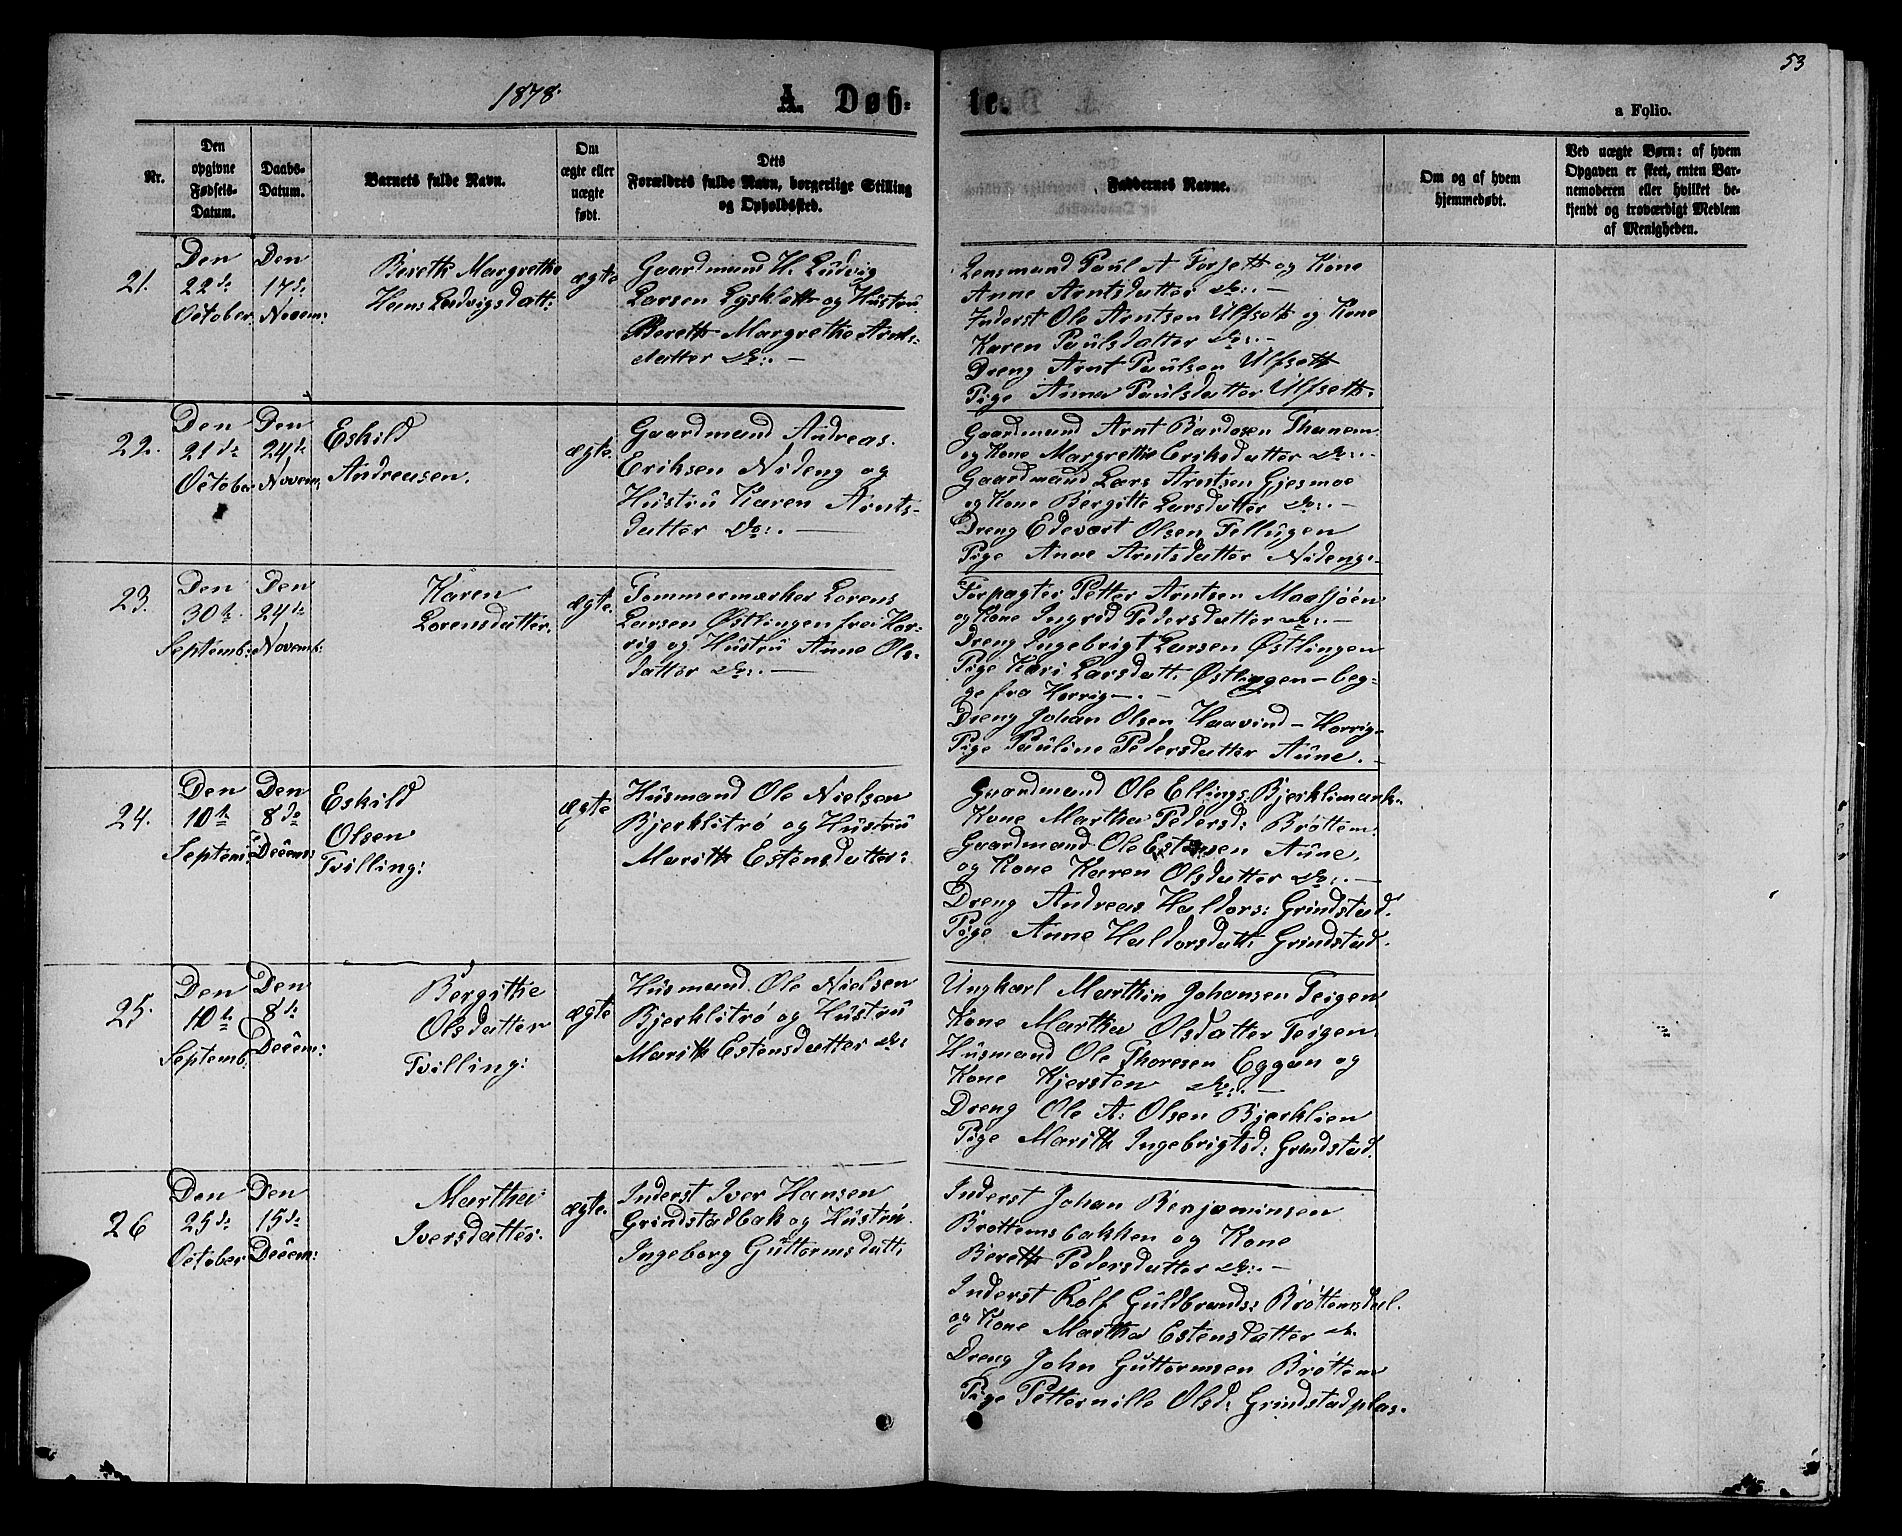 53
1878.
A. Døb-
te.
a Folio.
Nr.
Den
opgivne
Fødsels-
Datum.
Daabs-
Datum.
Barnets fulde Navn.
Om
ægte eller
uægte
født.
Dets
Forældres fulde Navn, borgerlige Stilling
og Opholdssted.
Faddernes Navne.
Om og af hvem
hjemmedøbt.
Ved uægte Børn: af hvem
Opgaven er skeet, enten Bar-
nemoderen eller hvilket be-
kjendt og troværdigt Medlem
af Menigheden.
21.
Den
22de
October.
Den
17de
Novem:
Bereth Margrethe
Hans Ludvigsdatt:
ægte
Gaardmand H. Ludvig
Larsen Lysklett og Hustru
Bereth Margrethe Arnts-
datter do:. —
Lensmand Paul A Forseth og Kone
Anne Arntsdatter do:. —
Inderst Ole Arntsen Ulfseth og Kone
Karen Paulsdatter do:. —
Dreng Arnt Paulsen Ulfseth
Pige Anna Paulsdatter Ulfseth.
22.
Den
21de
October
Den
24de
Novem:
Eskild
Andreasen.
ægte.
Gaardmand Andreas.
Eriksen Nideng og
Hustru Karen Arnts-
datter do:. —
Gaardmand Arnt Bardosen Thanem
og Kone Margrethe Eriksdatter do:. —
Gaardmand Lars Arntsen Gjesmoe
og Kone Bergitte Larsdatter do:. —
Dreng Edevart Olsen Tellugen
Pige Anne Arntsdatter Nideng:-
23.
Den
30te
Septemb:
Den
24de
Novemb:
Karen
Lorensdatter.
ægte.
Tømmermærker Lorens
Larsen Østlingen fra Hor-
rig og Hustru Anne Ols-
datter do:. —
Forpagter Petter Arntsen Maasjøen
og Kone Ingrid Pedersdatter do:. —
Dreng Ingebrigt Larsen Østlingen
Pige Kari Larsdatt: Østlingen — beg-
ge fra Horrig —. —
Dreng Johan Olsen Haavind — Horrig-
Pige Pauline Pedersdatter Aune. —
24.
Den
10te
Septem:
Den
8de
Decem:
Eskild
Olsen
Tvilling:
ægte
Husmand Ole Nielsen
Bjerklitrø og Hustru
Marith Estensdatter:
Gaardmand Ole Ellings: Bjerklimark.
Kone Martha Pedersd: Brøttem.
Gaardmand Ole Estensen Aune.
og Kone Karen Olsdatter do:. —
Dreng Andreas Haldors: Grindstad.
Pige Anne Haldorsdatt: Grindstad.
25.
Den
10te
Septemb.
Den
8de
Decem:
Bergithe
Olsdatter
Tvilling:
ægte
Husmand Ole Nielsen
Bjerklitrø og Hustru
Marith Estensdatter do:
Ungkarl Marthin Johansen Teigen
Kone Martha Olsdatter Teigen.
Husmand Ole Thoresen Eggan og
Kone Kjersten do:. —
Dreng Ole A: Olsen Bjerklien
Pige Marith Ingebrigtsd: Grindstad.
26
Den
25de
October
Den
15de
Decem:
Martha
Iversdatter.
ægte.
Inderst Iver Hansen
Grindstadbak og Hustru.
Ingeborg Guttormsdatt:
Inderst Johan Benjaminsen
Brøttemsbakken og Kone
Bereth Pedersdatter do:. —
Inderst Rolf Guldbrands: Brøttemsdal.
og Kone Martha Estensdatter do.
Dreng John Guttormsen Brøttem
Pige Petternille Olsd: Grindstadplas.